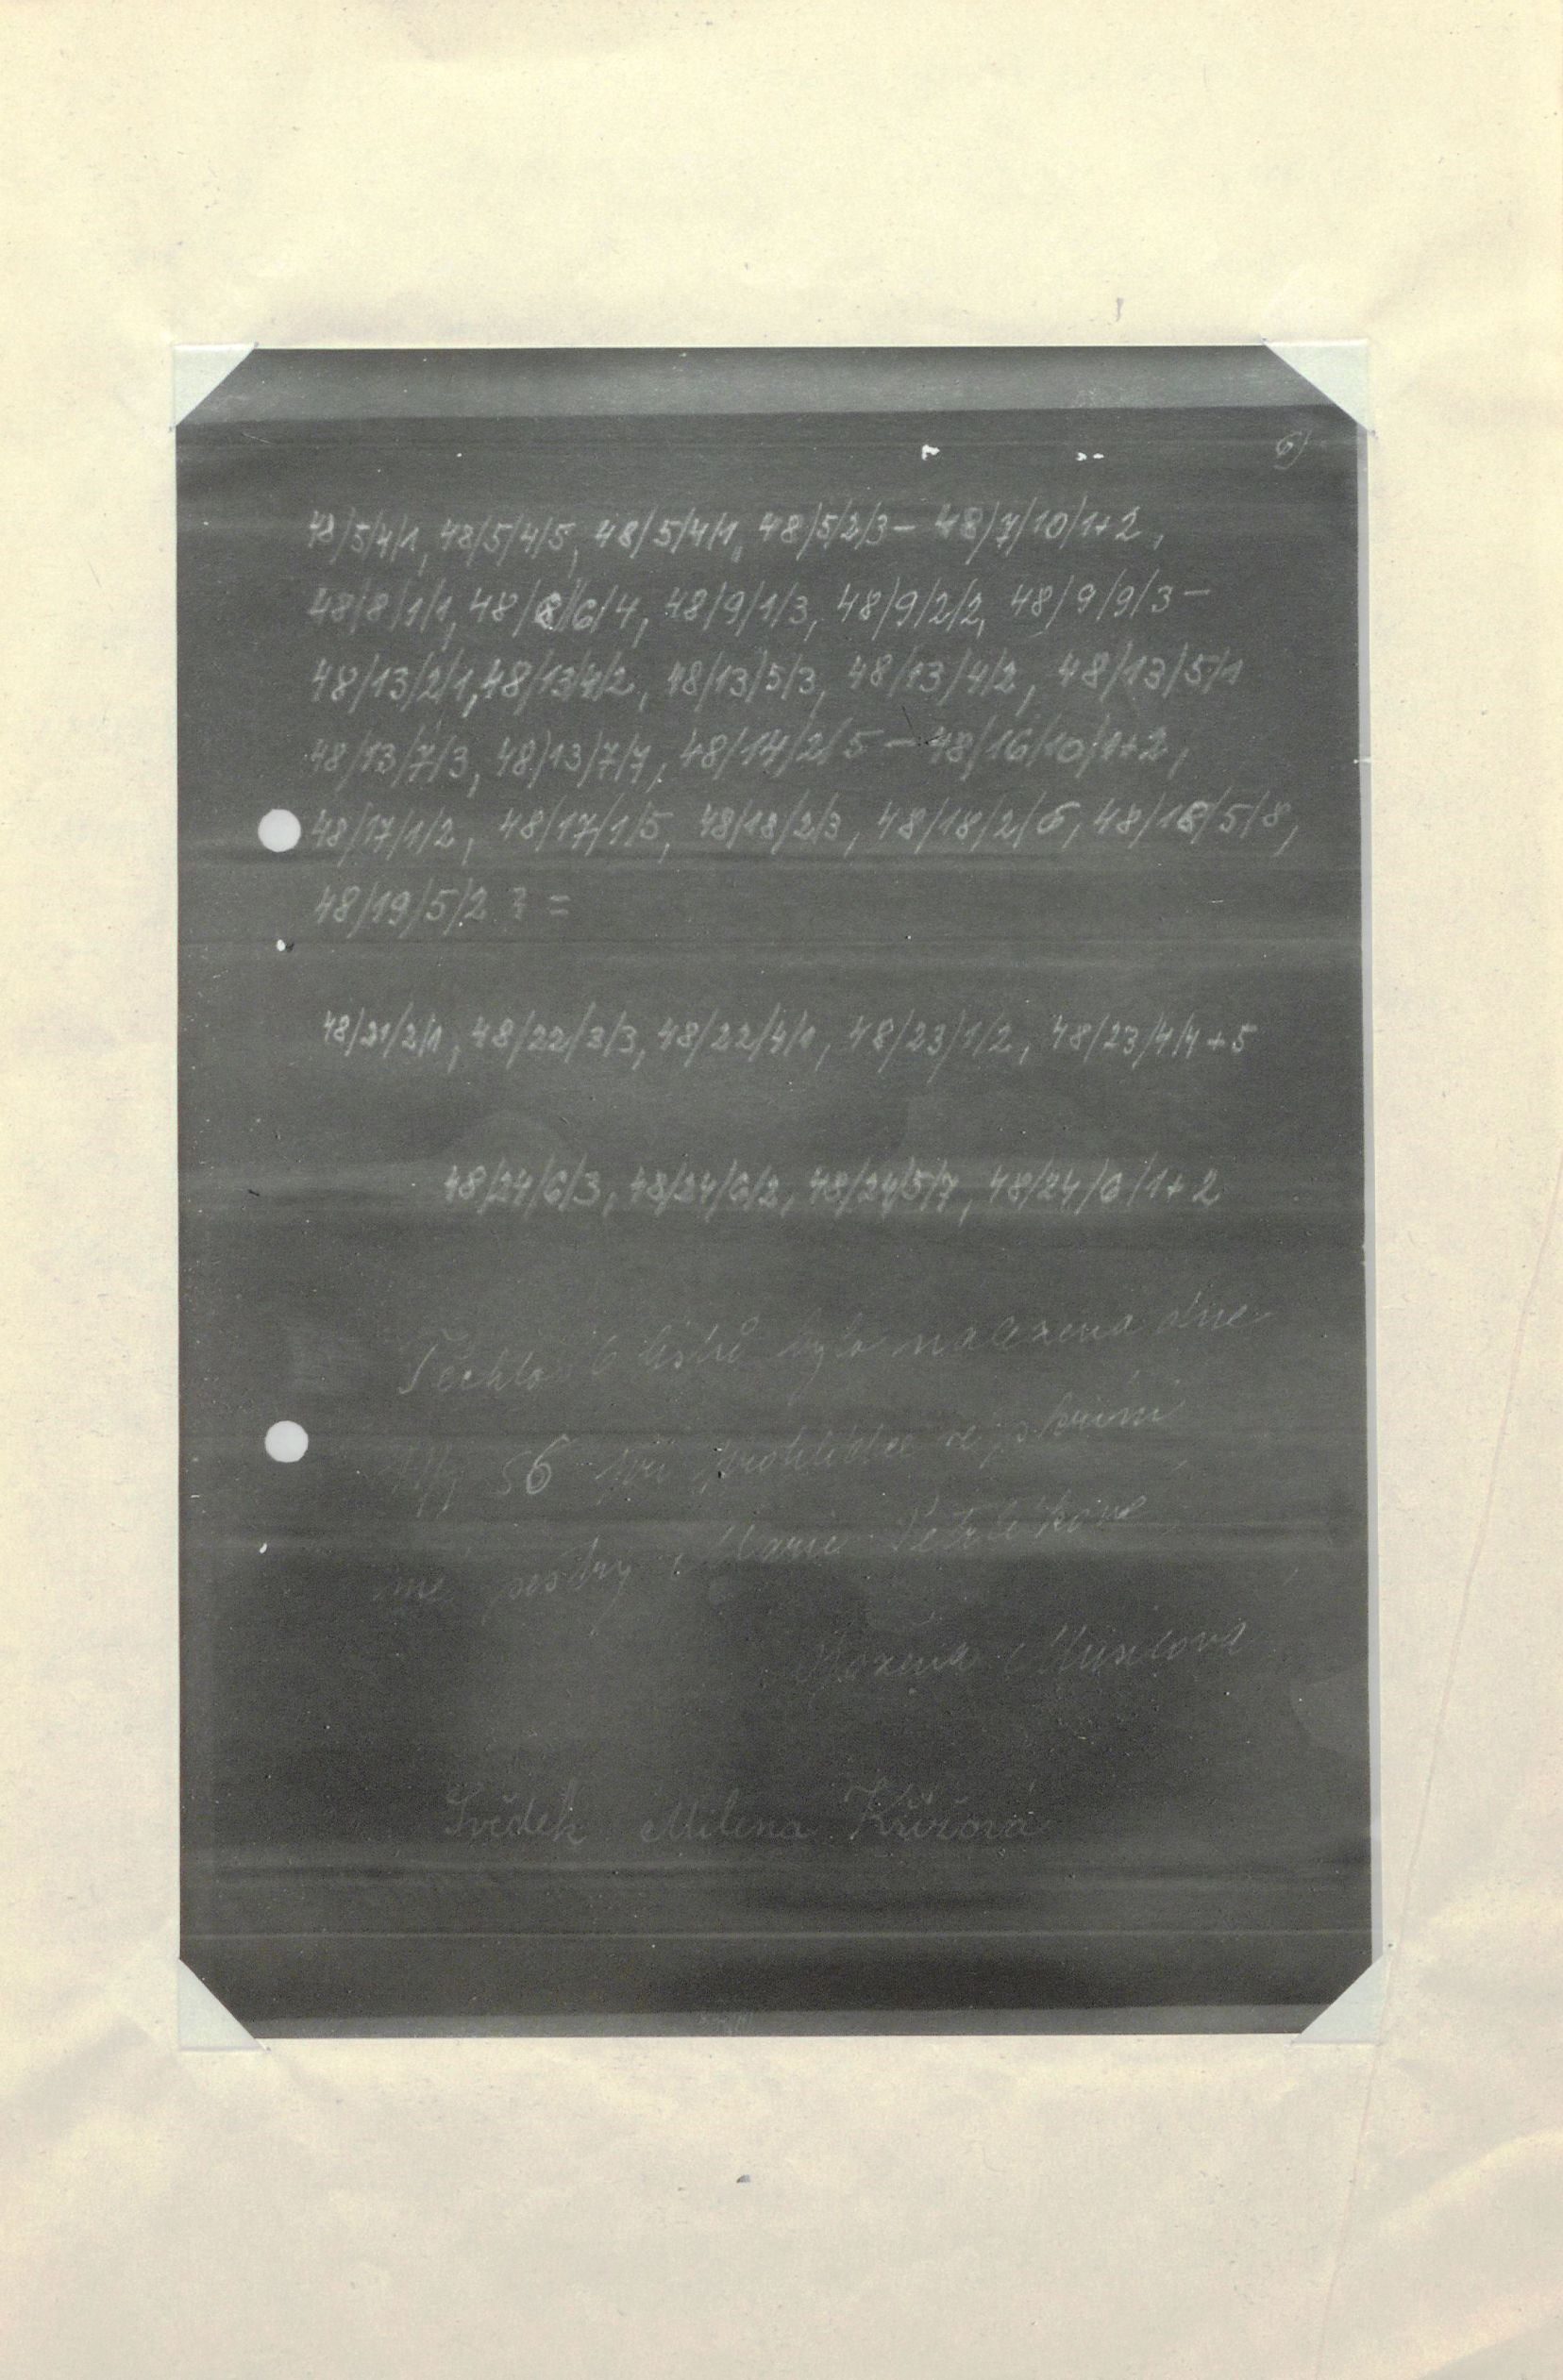 6)
48/5/4/1, 48/5/4/5, 48/5/4/1, 48/5/2/3 - 48/7/10/1+2,
48/8/1/1, 48/8/6/4, 48/9/1/3, 48/9/2/2, 48/9/9/3 -
48/13/2/1, 48/13/4/2, 48/13/5/3, 48/13/4/2, 48/13/5/1
48/13/7/3, 48/13/7/7, 48/14/2/5 - 48/16/10/1+2,
48/17/1/2, 48/17/1/5, 48/18/2/3, 48/18/2/6, 48/18/5/8,
48/19/5/2 ? =
48/21/2/1, 48/22/3/3, 48/22/4/1, 48/23/1/2, 48/23/4/4+5
48/24/6/3, 48/24/6/2, 48/24/5/7, 48/24/6/1+2
Těchto 6 listů bylo nalezeno dne
56 při prohlídce ve skříni
mé sestry Marie Petrlíkové
Božena Musilová
Svědek Milena Křížová